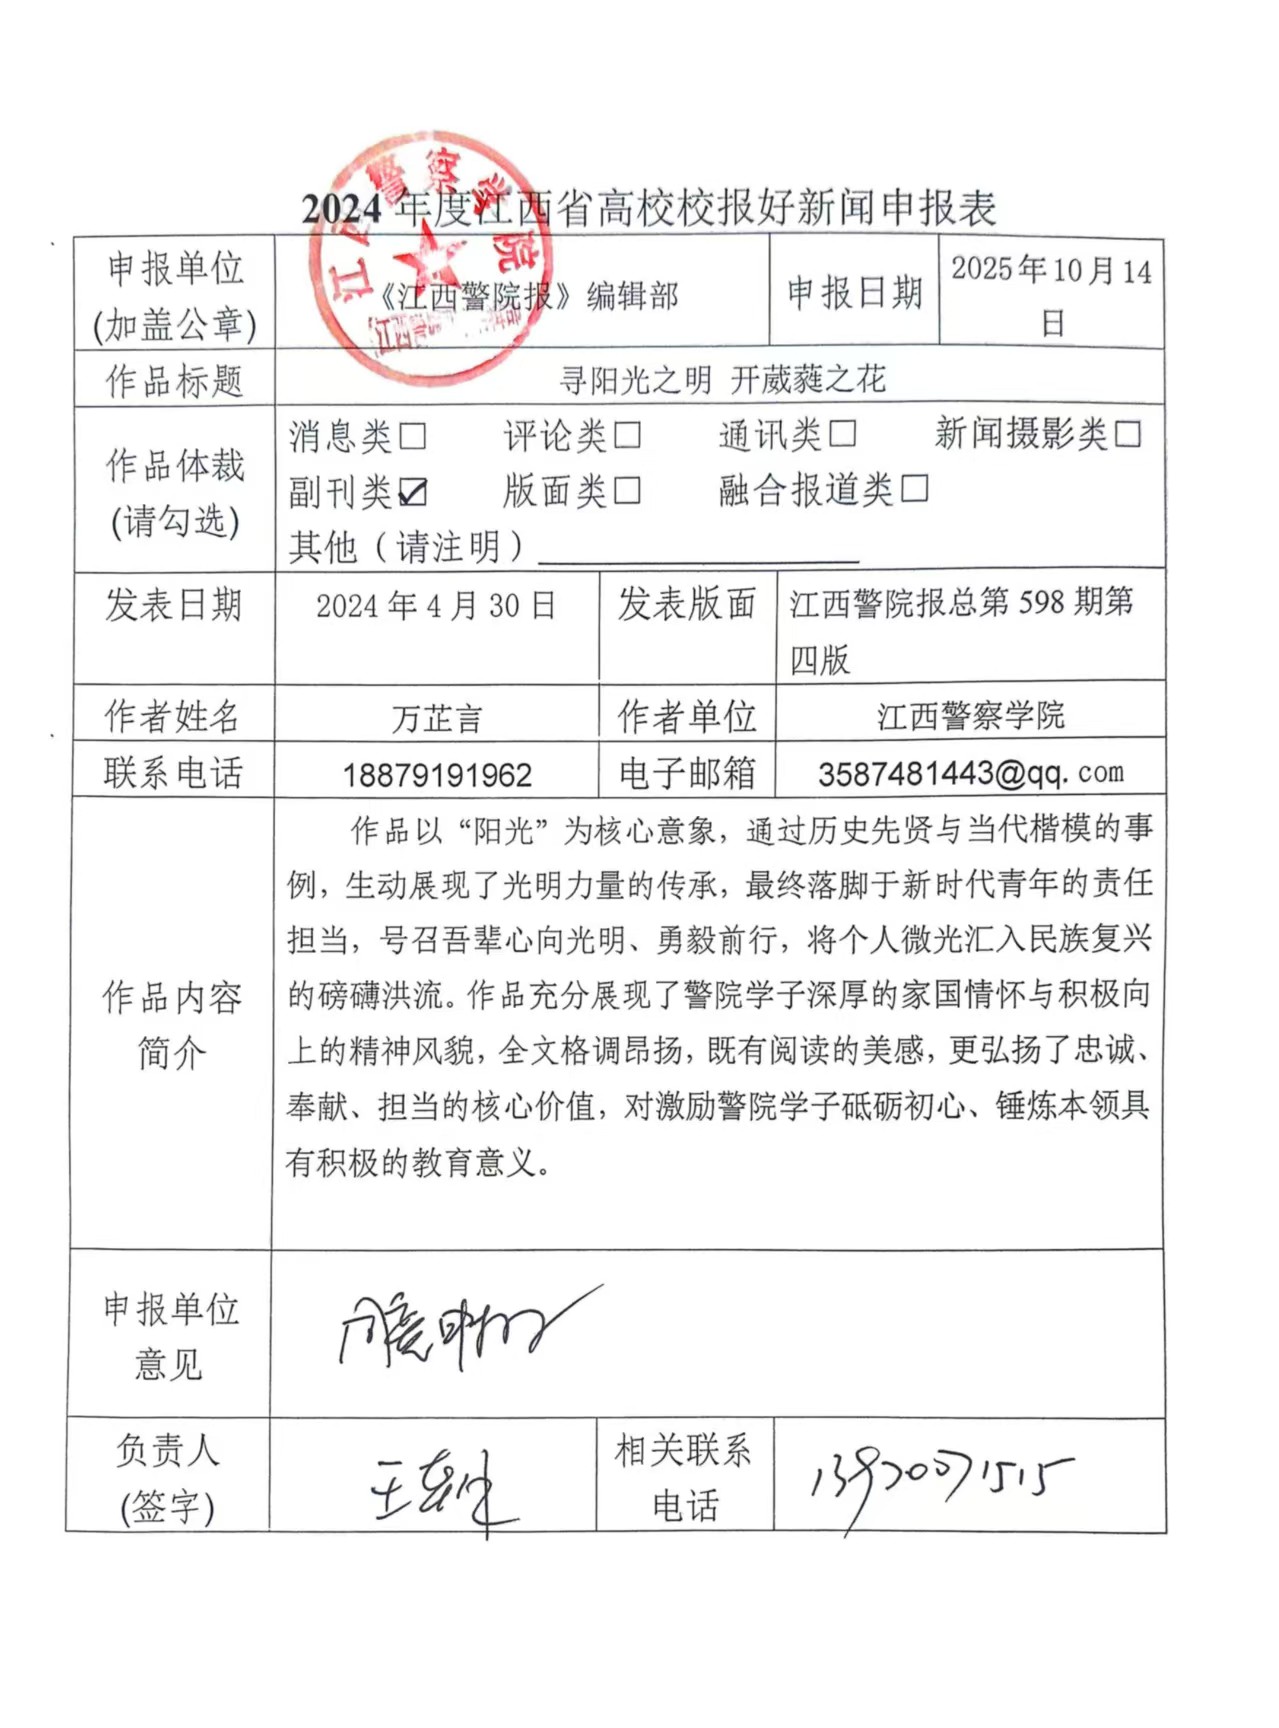 2024 年度江西省高校校报好新闻申报表
江西警察学院
申报单位
(加盖公章)
《江西警院报》编辑部
申报日期
2025年10月14
日
作品标题
寻阳光之明 开葳蕤之花
作品体裁
(请勾选)
消息类□ 评论类□ 通讯类□ 新闻摄影类□
副刊类☑ 版面类□ 融合报道类□
其他（请注明）
发表日期
2024 年 4 月 30 日
发表版面
江西警院报总第 598 期第
四版
作者姓名
万芷言
作者单位
江西警察学院
联系电话
18879191962
电子邮箱
3587481443@qq.com
作品内容
简介
作品以“阳光”为核心意象，通过历史先贤与当代楷模的事
例，生动展现了光明力量的传承，最终落脚于新时代青年的责任
担当，号召吾辈心向光明、勇毅前行，将个人微光汇入民族复兴
的磅礴洪流。作品充分展现了警院学子深厚的家国情怀与积极向
上的精神风貌，全文格调昂扬，既有阅读的美感，更弘扬了忠诚、
奉献、担当的核心价值，对激励警院学子砥砺初心、锤炼本领具
有积极的教育意义。
申报单位
意见
同意申报
负责人
(签字)
相关联系
电话